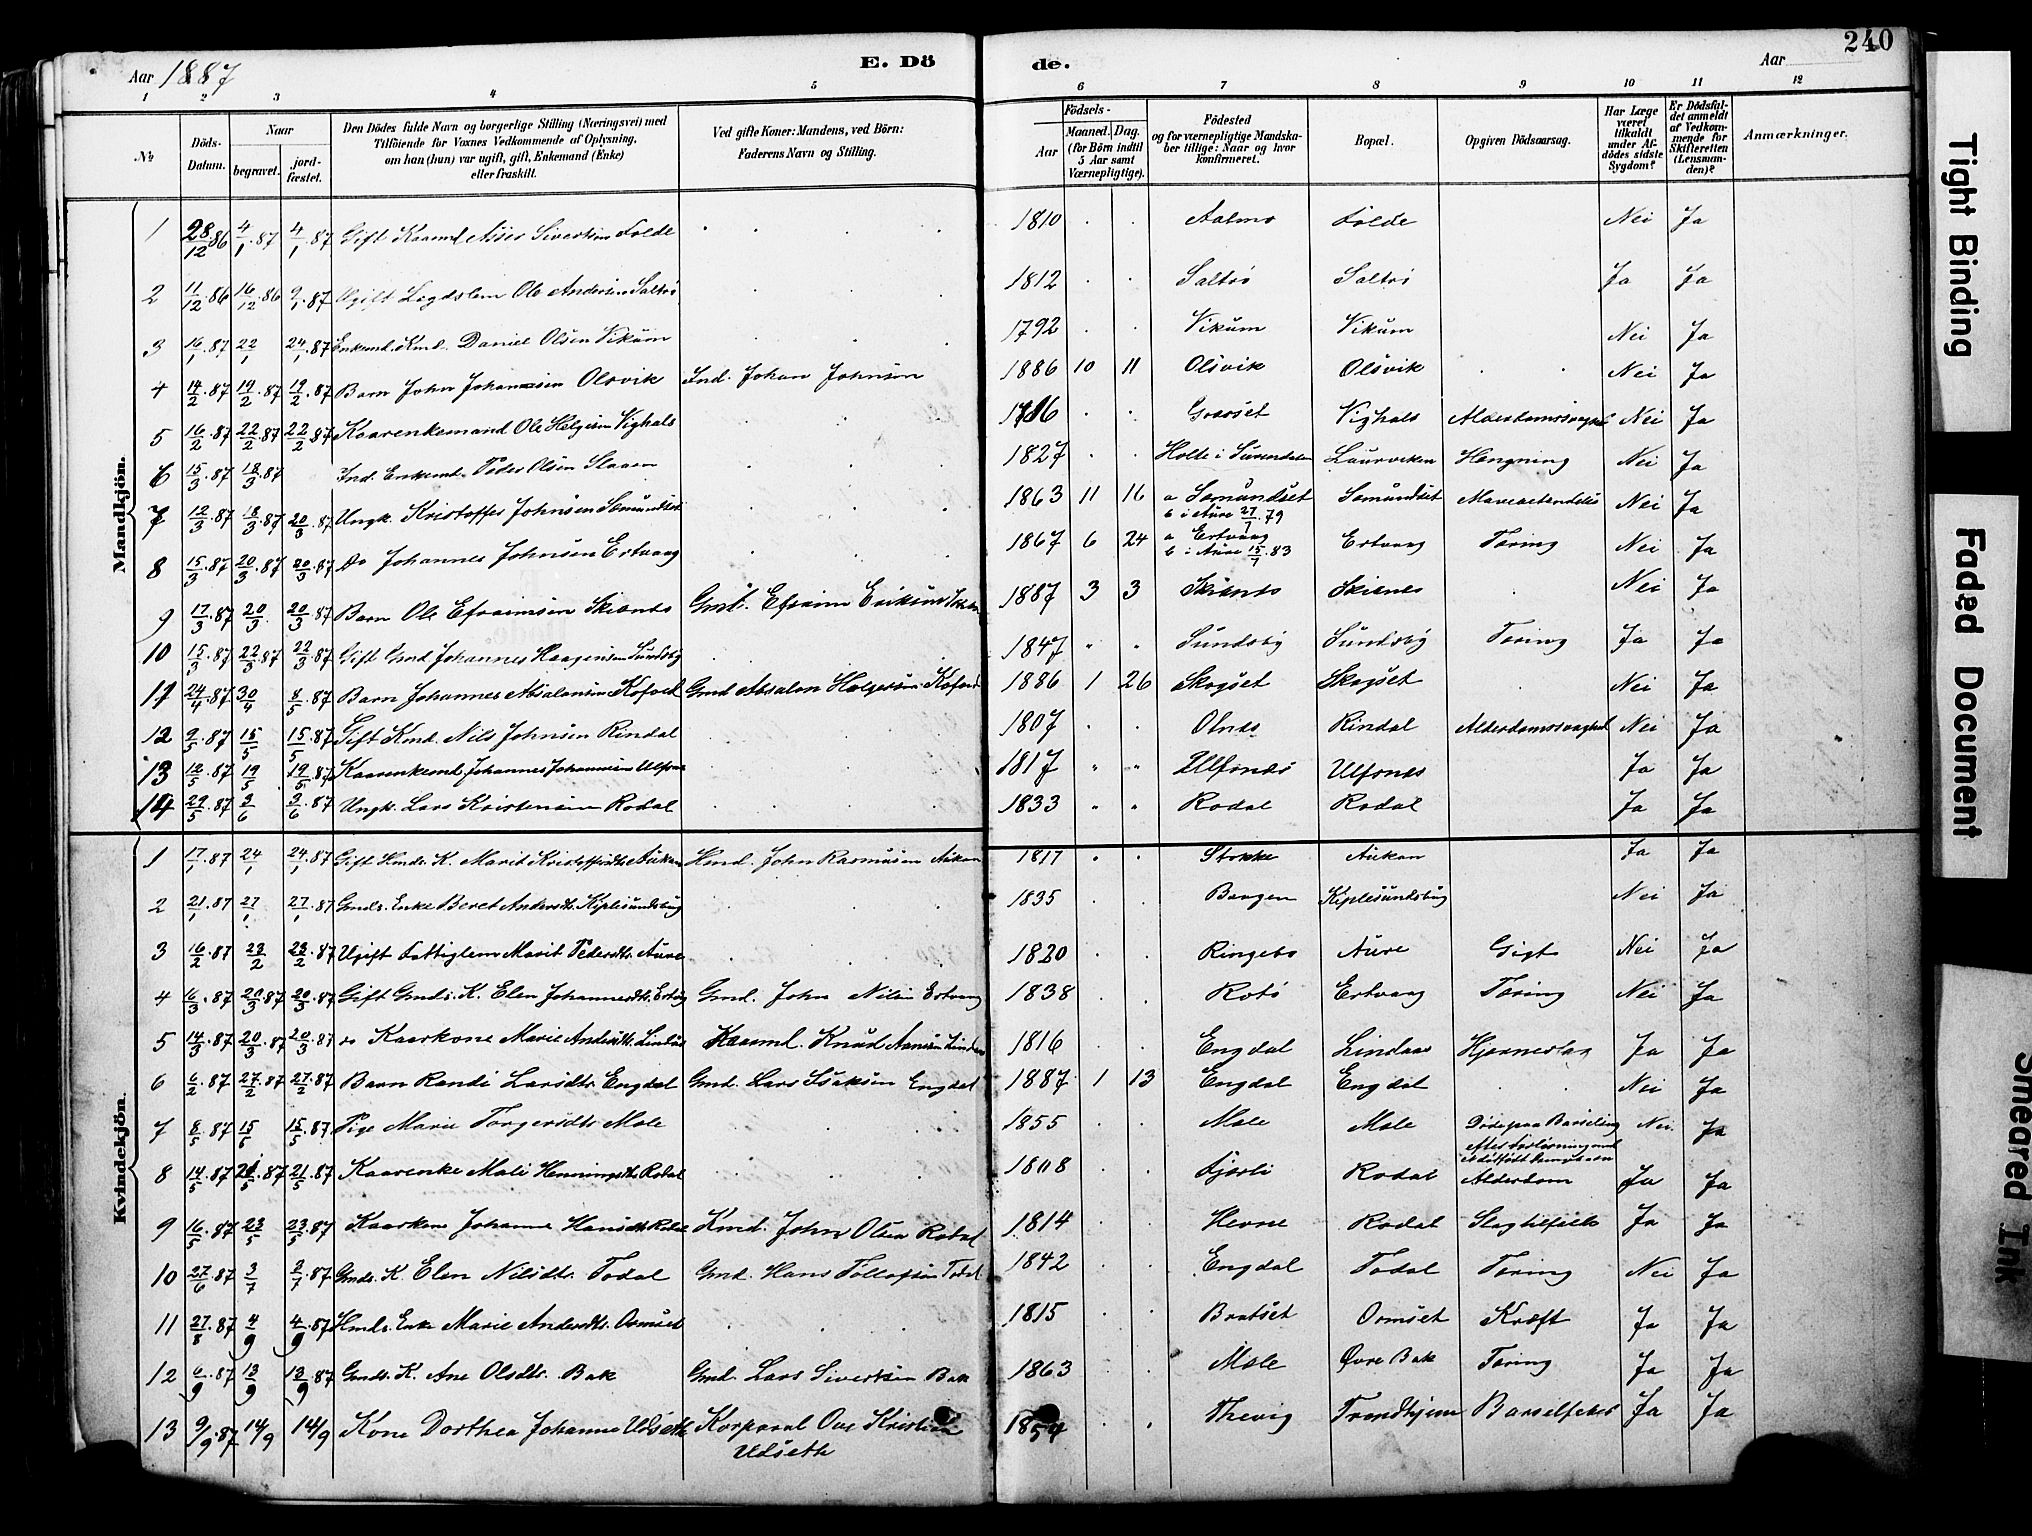 240
Aar 1887
E. Dö
de.
Aar
1 2 3 4 5 6 7 8 9 10 11 12
№
Döds-
Datum.
Naar
begravet.
jord-
fæstet.
Den Dödes fulde Navn og borgerlige Stilling (Næringsvei) med
Tilföiende for Voxnes Vedkommende af Oplysning,
om han (hun) var ugift, gift, Enkemand (Enke)
eller fraskilt.
Ved gifte Koner: Mandens, ved Börn:
Faderens Navn og Stilling.
Födsels-
Aar
Maaned. Dag.
(for Börn indtil
5 Aar samt
Værnepligtige).
Födested
og for værnepligtige Mandska-
ber tillige: Naar og hvor
konfirmeret.
Bopæl.
Opgiven Dödsaarsag.
Har Læge
været
tilkaldt
under Af-
dödes sidste
Sygdom?
Er Dödsfal-
det anmeldt
af Vedkom-
mende for
Skifteretten
(Lensman-
den)?
Anmærkninger.
Mandkjön.
1 28/12.86 4/1.87 4/1.87 Gift Sivertsen Folde 1810 Aalmo Folde Nei Ja
2 11/12.86 16/12.86 9/1.87 Ugift Legdslem Ole Andersen Saltrö 1812 Saltrö Saltrö Ja Ja
3 16/1.87 22/1 24/1.87 Enkemd. Kmd. Daniel Olsen Vikum 1792 Vikum Vikum Nei Ja
4 14/2.87 19/2.87 19/2.87 Barn John Johansen Olsvik Ind. Johan Johnsen 1886 10 11 Olsvik Olsvik Nei Ja
5 16/2.87 22/2.87 22/2.87 Kaarenkemand Ole Helgesen Vighals Vighals Alderdomssvaghed Nei Ja
6 15/3.87 18/3.87 Ind. Enkemd. Peder Olsen 1827 Holte i Surendalen Laurviken Hængning Nei Ja
7 12/3.87 18/3.87 20/3.87 Ungk. Kristoffer Johnsen Semundset 1863 11 16 a Semundset
b i Aure 27/7.79 Semundset Nei Ja
8 15/3.87 20/3.87 20/3.87 Do Johannes Johnsen Ertvaag 1867 6 24 a Ertvaag
b i Aure 15/7.83 Ertvaag Tæring Nei Ja
9 17/3.87 20/3 20/3.87 Barn Ole Efraimsen Skisnes Gmd. Efraim Eriksen 1887 3 3 Skisnes Skisnes Nei Ja
10 15/3.87 22/3.87 22/3.87 Gift Gmd Johannes Haagensen Sundsby 1847 " " Sundsby Sundsby Tæring Ja Ja
11 24/4.87 30/4 8/5.87 Barn Johannes Absalonsen Gmd Absalon Holgersen 1886 1 26 Skogset Skogset Nei Ja
12 9/5.87 15/5 15/5.87 Gift Kmd. Nils Johnsen Rindal 1807 Olnes Rindal Alderdomssvaghed Nei Ja
13 12/5.87 19/5 19/5.87 Kaarenkemd. Johannes Johannesen Ulfsnes 1817 " " Ulfsnes Ulfsnes Ja Ja
14 29/5.87 3/6 3/6.87 Ungk. Lars Kristensen Rodal 1833 " " Rodal Rodal Ja Ja
Kvindekjön.
1 17/1.87 24/1 24/1.87 Gift Hmds. K. Marit Kristoffersdtr. Aukan Hmd. John Rasmusen Aukan 1817 " " Stokke Aukan Ja Ja
2 21/1.87 27/1 27/1.87 Gmds. Enke Beret Andersdtr. Kiplesundsbug 1835 Bangen Kiplesundsbug Nei Ja
3 16/2.87 23/2 23/2.87 Ugift Fattiglem Marit Pedersdtr. Aure 1820 Ringebo Aure Gigt Nei Ja
4 16/3.87 20/3.87 20/3.87 Gift Gmds. K. Elen Johannesdtr. Ertvåg Gmd. John Nilsen Ertvaag 1838 Rotö Ertvaag Tæring Nei Ja
5 14/3.87 20/3.87 20/3.87 do Kaarkone Marie Andersdtr. Lindaas Kaarmd. Knud Lindaas 1816 Engdal Lindaas Hjerneslag Ja Ja
6 6/2.87 27/2.87 27/2.87 Barn Randi Larsdtr. Engdal Gmd. Lars Isaksen Engdal 1887 1 13 Engdal Engdal Nei Ja
7 8/5.87 15/5 15/5.87 Pige Marie Torgersdtr. Mole 1855 Mole Mole Döde paa Barselseng
efter Forlösning med
et dödfödt Nei Ja
8 14/5.87 21/5.87 21/5.87 Kaarenke Mali Henningsdtr. Rodal 1808 Fjorli Rodal Alderdom Ja Ja
9 16/5.87 23/5 23/5.87 Kaarkone Johanne Hansdtr. Rodal Kmd. John Olsen Rodal 1814 Hevne Rodal Slagtilfælde Ja Ja
10 27/6.87 3/7 3/7.87 Gmds. K. Elen Nilsdtr. Todal Gmd. Hans Tollofsen Todal 1842 Engdal Todal Tæring Nei Ja
11 27/8.87 4/9 4/9.87 Hmds. Enke Marie Andersdtr. Ormset 1815 Bratset Ormset Kræft Ja Ja
12 6/9.87 13/9 13/9.87 Gmds. K. Ane Olsdtr. Bak Gmd. Lars Sivertsen Bak 1863 Mole Øvre Bak Tæring Ja Ja
13 9/9.87 14/9 14/9 Kone Dorthea Johanne Udseth Korporal Ove Kristian
Udseth 1854 Thevig Trondhjem Barselfeber Ja Ja
Tight Binding
Faded Document
Smeared Ink